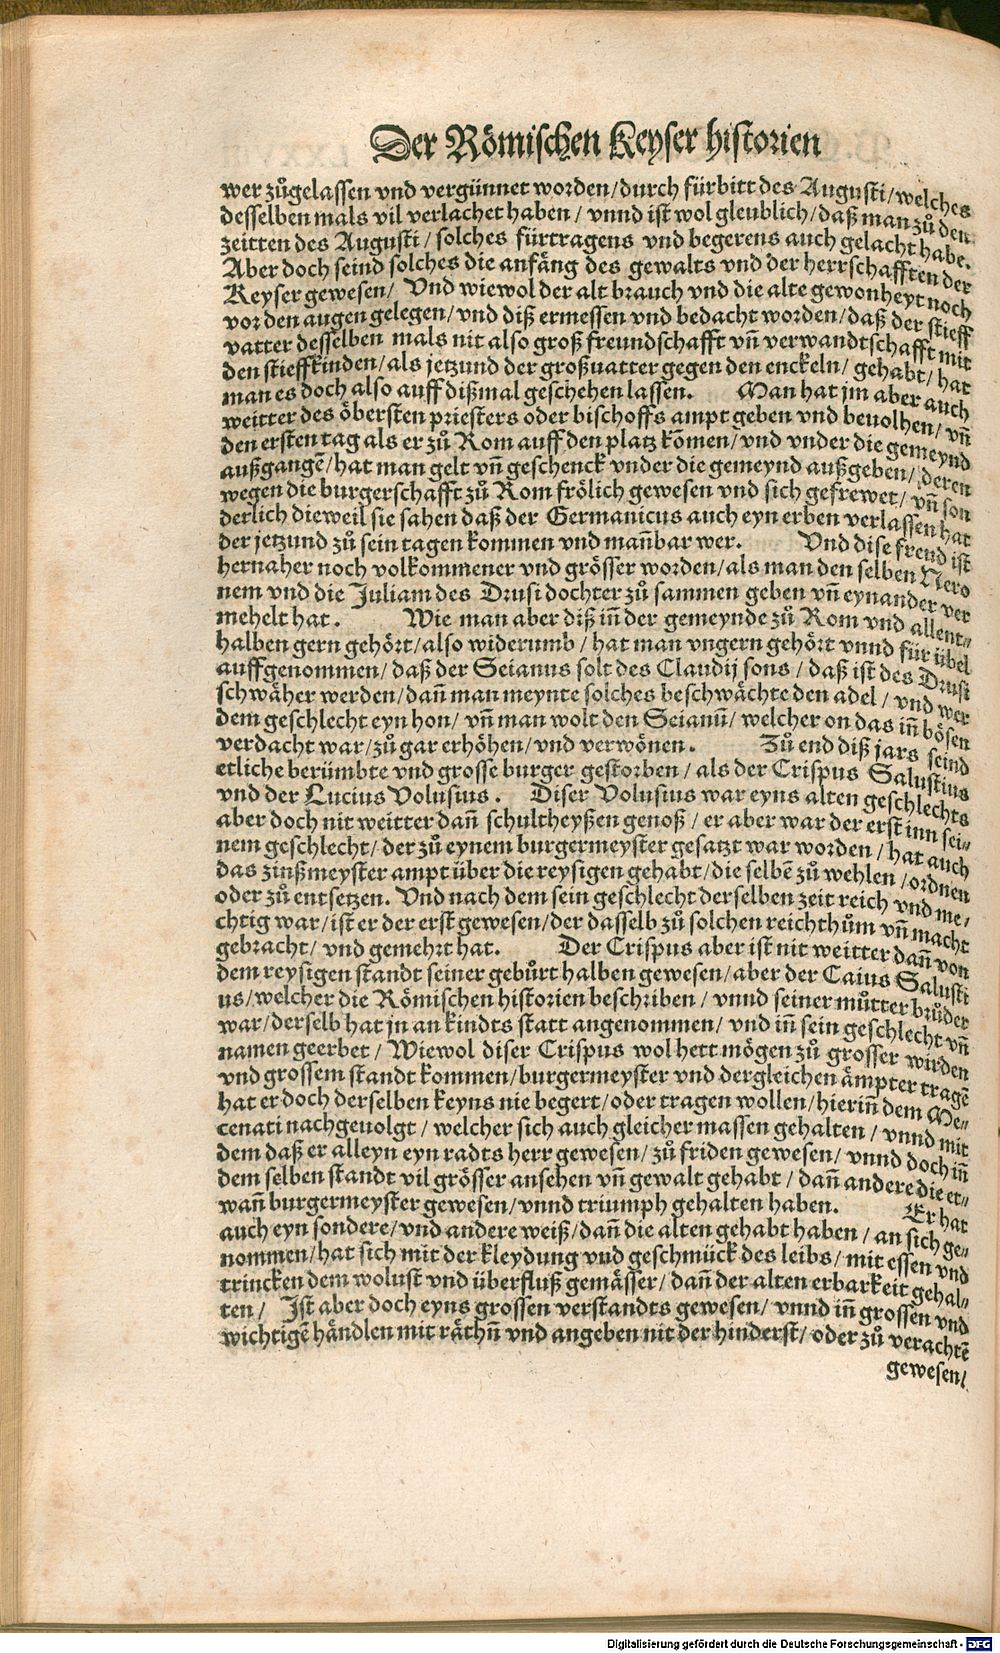 Der Römischen Keyser historien
wer zůgelassen vnd vergünnet worden/durch fürbitt des Augusti/welches
desselben mals vil verlachet haben/ vnnd ist wol gleublich/daß man zů den
zeitten des Augusti/ solches fürtragens vnd begerens auch gelacht habe.
Aber doch seind solches die anfäng des gewalts vnd der herrschafften der
Keyser gewesen/ Vnd wiewol der alt brauch vnd die alte gewonheyt noch
vor den augen gelegen/vnd diß ermessen vnd bedacht worden/daß der stieff
vatter desselben mals nit also groß freundschafft vñ verwandtschafft mit
den stieffkinden/als jetzund der großuatter gegen den enckeln/ gehabt/ hat
man es doch also auff dißmal geschehen lassen. Man hat jm aber auch
weitter des öbersten priesters oder bischoffs ampt geben vnd beuolhen/ vñ
den ersten tag als er zů Rom auff den platz kõmen/vnd vnder die gemeynd
außgangẽ/hat man gelt vñ geschenck vnder die gemeynd außgeben/ deren
wegen die burgerschafft zů Rom frölich gewesen vnd sich gefrewet/ vñ son
derlich dieweil sie sahen daß der Germanicus auch eyn erben verlassen hat
der jetzund zů sein tagen kommen vnd mañbar wer. Vnd dise freud ist
hernaher noch volkommener vnd grösser worden/als man den selben Nero
nem vnd die Juliam des Drusi dochter zů sammen geben vñ eynander ver
mehelt hat. Wie man aber diß iñ der gemeynde zů Rom vnd allent⸗
halben gern gehört/also widerumb/ hat man vngern gehört vnnd für übel
auffgenommen/daß der Seianus solt des Claudij sons/ daß ist des Drusi
schwäher werden/dañ man meynte solches beschwächte den adel/ vnd wer
dem geschlecht eyn hon/ vñ man wolt den Seianũ/ welcher on das iñ bösen
verdacht war/zů gar erhöhen/vnd verwönen. Zů end diß jars seind
etliche berümbte vnd grosse burger gestorben/ als der Crispus Salustius
vnd der Lucius Volusius. Diser Volusius war eyns alten geschlechts
aber doch nit weitter dañ schultheyßen genoß/ er aber war der erst inn sei⸗
nem geschlecht/der zů eynem burgermeyster gesatzt war worden/ hat auch
das zinßmeyster ampt über die reysigen gehabt/die selbẽ zů wehlen/ordnen
oder zů entsetzen. Vnd nach dem sein geschlecht derselben zeit reich vnd me⸗
chtig war/ist er der erst gewesen/der dasselb zů solchen reichthům vñ macht
gebracht/ vnd gemehrt hat. Der Crispus aber ist nit weitter dañ von
dem reysigen standt seiner gebůrt halben gewesen/aber der Caius Salusti
us/welcher die Römischen historien beschriben/ vnnd seiner můtter brůder
war/derselb hat jn an kindts statt angenommen/ vnd iñ sein geschlecht vñ
namen geerbet/ Wiewol diser Crispus wol hett mögen zů grosser wirden
vnd grossem standt kommen/burgermeyster vnd dergleichen ämpter tragẽ
hat er doch derselben keyns nie begert/oder tragen wollen/hieriñ dem Me⸗
cenati nachgeuolgt/ welcher sich auch gleicher massen gehalten/ vnnd mit
dem daß er alleyn eyn radts herr gewesen/ zů friden gewesen/ vnnd doch iñ
dem selben standt vil grösser ansehen vñ gewalt gehabt/ dañ andere die et⸗
wañ burgermeyster gewesen/vnnd triumph gehalten haben. Er hat
auch eyn sondere/vnd andere weiß/dañ die alten gehabt haben/ an sich ge⸗
nommen/hat sich mit der kleydung vnd geschmück des leibs/ mit essen vnd
trincken dem wolust vnd überfluß gemässer/dañ der alten erbarkeit gehal⸗
ten/ Ist aber doch eyns grossen verstandts gewesen/ vnnd iñ grossen vnd
wichtigẽ händlen mit räthñ vnd angeben nit der hinderst/ oder zů verachtẽ
gewesen/
Digitalisierung gefördert durch die Deutsche Forschungsgemeinschaft - DFG